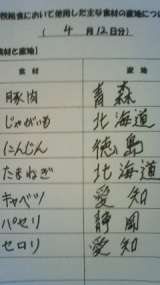 校給食において使用した主な食材の産地について
( 4 月 12 日分)
食材と産地】
食 材 産 地
豚肉 青森
じゃがいも 北海道
にんじん 徳島
たまねぎ 北海道
キャベツ 愛知
パセリ 静岡
セロリ 愛知